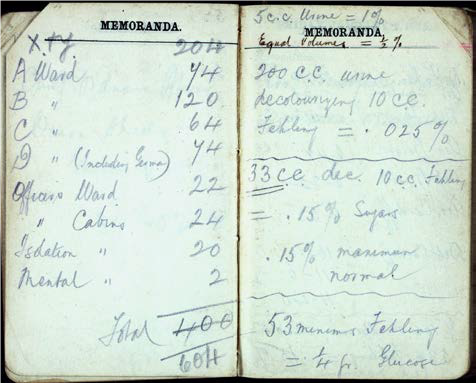 MEMORANDA.
X. + Y 204
A Ward 74
B " 120
C " 64
D " (Including Germa) 74
Officers Ward 22
" Cabins 24
Isolation " 20
Mental " 2
Total 400
604
5 c.c. Urine = 1%
MEMORANDA.
Equal Volumes = ½ %
200 C.C. urine
decolourizing 10 cc.
Fehling = .025%
33 cc dec. 10 c.c. Fehling
= .15% Sugars
.15% maximum
normal
53 minims Fehling
= ¼ gr. Glucose